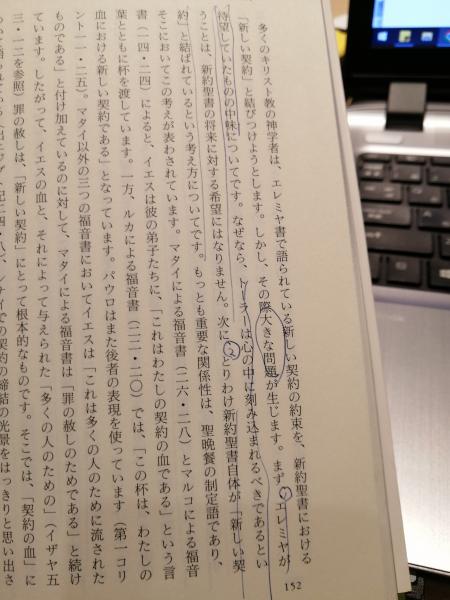 多くのキリスト教の神学者は、エレミヤ書で語られている新しい契約の約束を、新約聖書における
「新しい契約」と結びつけようとします。しかし、その際大きな問題が生じます。まず、エレミヤが
待望していたものの中味についてです。なぜなら、トーラーは心の中に刻み込まれるべきであるとい
うことは、新約聖書の将来に対する希望にはなりません。次に、とりわけ新約聖書自体が「新しい契
約」と結ばれているという考え方についてです。もっとも重要な関係性は、聖晩餐の制定語であり、
そこにおいてこの考えが表わされています。マタイによる福音書（二六・二八）とマルコによる福音
書（一四・二四）によると、イエスは彼の弟子たちに、「これはわたしの契約の血である」という言
葉とともに杯を渡しています。一方、ルカによる福音書（二二・二〇）では、「この杯は、わたしの
血における新しい契約である」となっています。パウロはまた後者の表現を使っています（第一コリ
ント一一・二五）。マタイ以外の三つの福音書においてイエスは「これは多くの人のために流された
ものである」と付け加えているのに対して、マタイによる福音書は「罪の赦しのためである」と続け
ています。したがって、イエスの血と、それによって与えられた「多くの人のための」（イザヤ五
三・一二を参照）罪の赦しは、「新しい契約」にとって根本的なものです。そこでは、「契約の血」に
シナイでの契約の締結の光景をはっきりと思い出さ
152